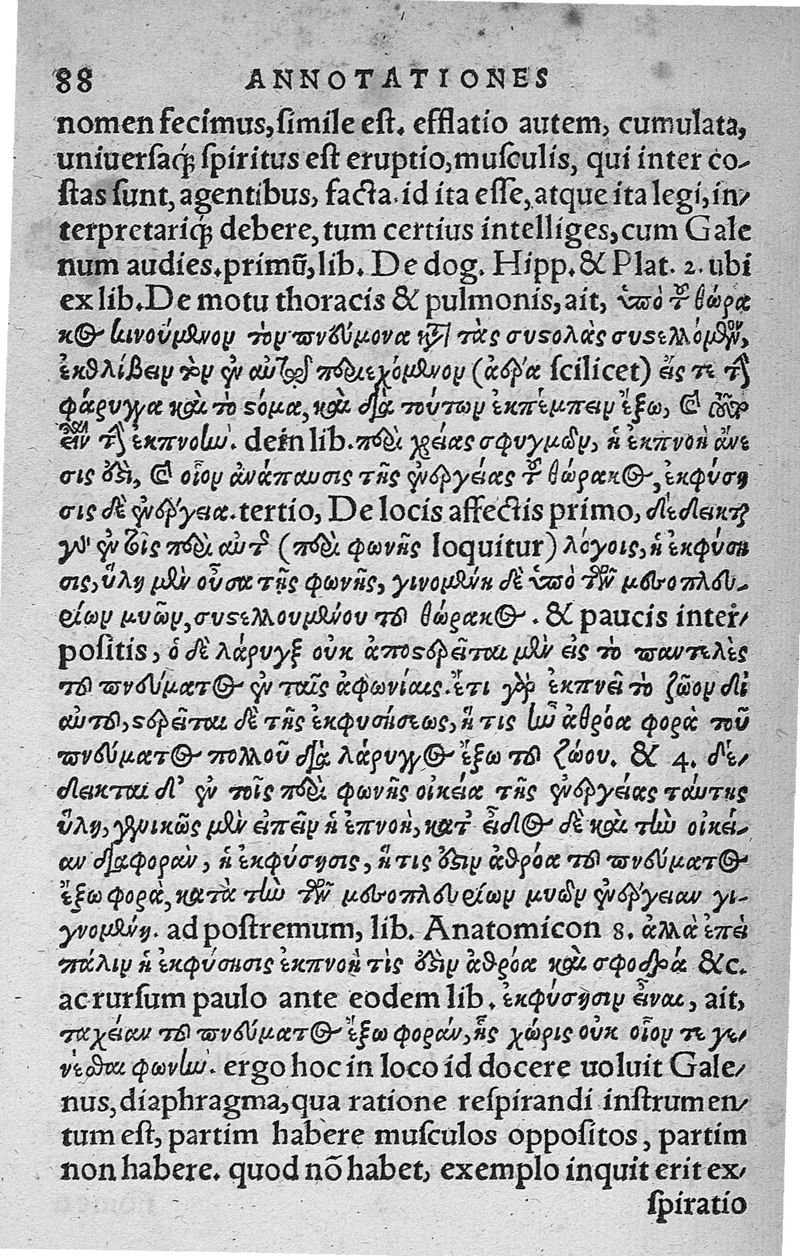 88 ANNOTATIONES
nomen fecimus, simile est. efflatio autem, cumulata,
universaq́; spiritus est eruptio, musculis, qui inter co-
stas sunt, agentibus, facta. id ita esse, atque ita legi, in-
terpretariq́; debere, tum certius intelliges, cum Gale
num audies. primũ, lib. De dog. Hipp. & Plat. 2. ubi
ex lib. De motu thoracis & pulmonis, ait, ὑπὸ τοῦ θώρα
κος κινούμενον τὸν πνεύμονα κατὰ τὰς συστολὰς συστελλόμενον,
ἐκθλίβειν τὸν ἐν αὑτῷ περιεχόμενον (ἀέρα scilicet) εἴς τε τὴν
φάρυγγα καὶ τὸ στόμα, καὶ διὰ τούτων ἐκπέμπειν ἔξω, καὶ
τὴν ἐκπνοὴν. dein lib. περὶ χρείας σφυγμῶν, ἡ ἐκπνοὴ ἄνε
σις ὅτι, καὶ οἷον ἀνάπαυσις τῆς ἐνεργείας τοῦ θώρακος, ἐκφύση
σις δὲ ἐνέργεια. tertio, De locis affectis primo, δέδεικται
γὰρ ἐν τοῖς περὶ αὐτῆς (περὶ φωνῆς loquitur) λόγοις, ἡ ἐκφύση
σις, ὕλη μὲν οὖσα τῆς φωνῆς, γινομένη δὲ ὑπὸ τῶν μεσοπλευ-
ρίων μυῶν, συστελλουμένου τοῦ θώρακος. & paucis inter-
positis, ὁ δὲ λάρυγξ οὐκ ἀποστερεῖται μὲν εἰς τὸ παντελὲς
τοῦ πνεύματος ἐν ταῖς ἀφωνίαις. ἔτι γὰρ ἐκπνεῖ τὸ ζῶον δι
αὐτοῦ, στερεῖται δὲ τῆς ἐκφυσήσεως, ἥ τις ἦν ἀθρόα φορὰ τοῦ
πνεύματος πολλοῦ διὰ λάρυγγος ἔξω τοῦ ζώου. & 4. δέ-
δεικται δ' ἐν τοῖς περὶ φωνῆς οἰκεία τῆς ἐνεργείας ταύτης
ὕλη, γενικῶς μὲν εἰπεῖν ἡ ἐπνοὴ, κατ' εἶδος δὲ καὶ τὴν οἰκεί-
αν διαφορὰν, ἡ ἐκφύσησις, ἥ τις ἐστὶν ἀθρόα τοῦ πνεύματος
ἔξω φορὰ, κατὰ τὴν τῶν μεσοπλευρίων μυῶν ἐνέργειαν γι-
γνομένη. ad postremum, lib. Anatomicon 8. ἀλλὰ ἐπεὶ
πάλιν ἡ ἐκφύσησις ἐκπνοὴ τὶς ἐστὶν ἀθρόα καὶ σφοδρά &c.
ac rursum paulo ante eodem lib. ἐκφύσησιν εἶναι, ait,
ταχεῖαν τοῦ πνεύματος ἔξω φοράν, ἧς χώρις οὐκ οἷον τε γε-
νέσθαι φωνὴν. ergo hoc in loco id docere uoluit Gale-
nus, diaphragma, qua ratione respirandi instrumen-
tum est, partim habere musculos oppositos, partim
non habere. quod nõ habet, exemplo inquit erit ex-
spiratio